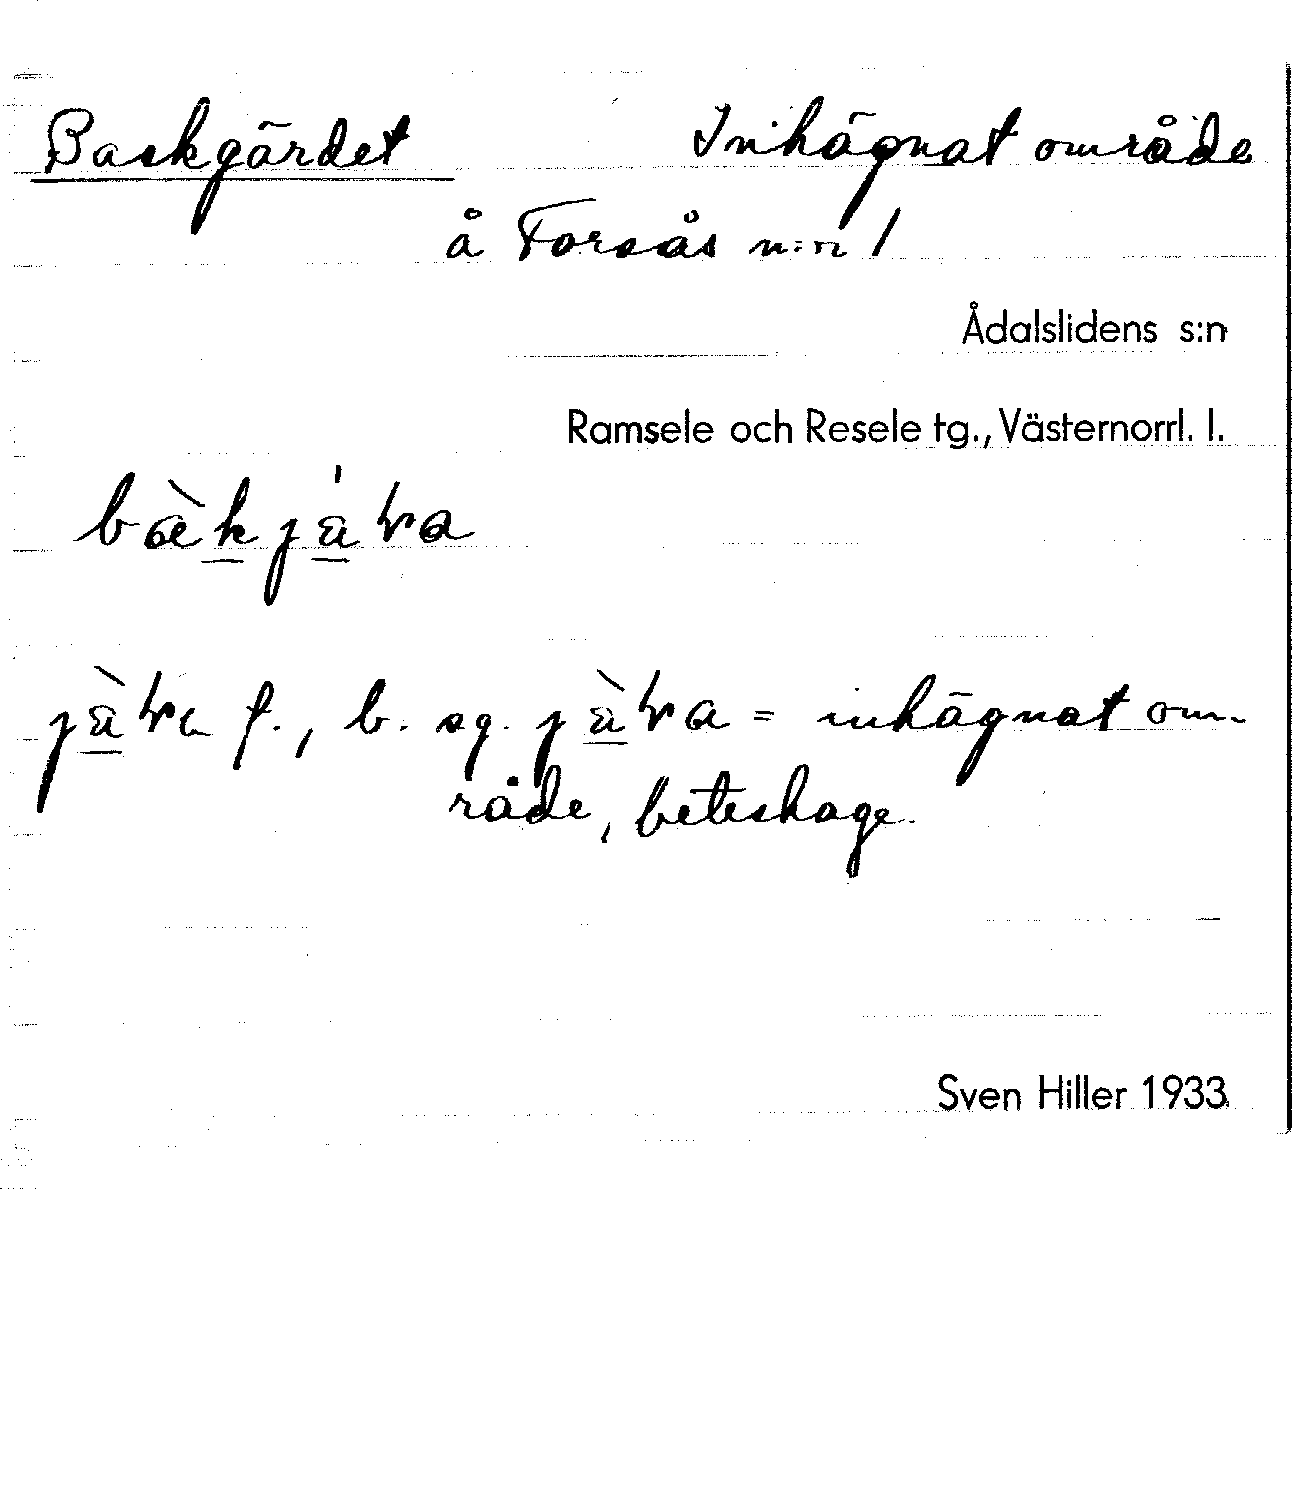 Backgärdet Inhägnat område
å Forsås n:r 1
Ådalslidens s:n
Ramsele och Resele tg., Västernorrl. l.
f., b. sg. = inhägnat om-
råde, beteshage.
Sven Hiller 1933